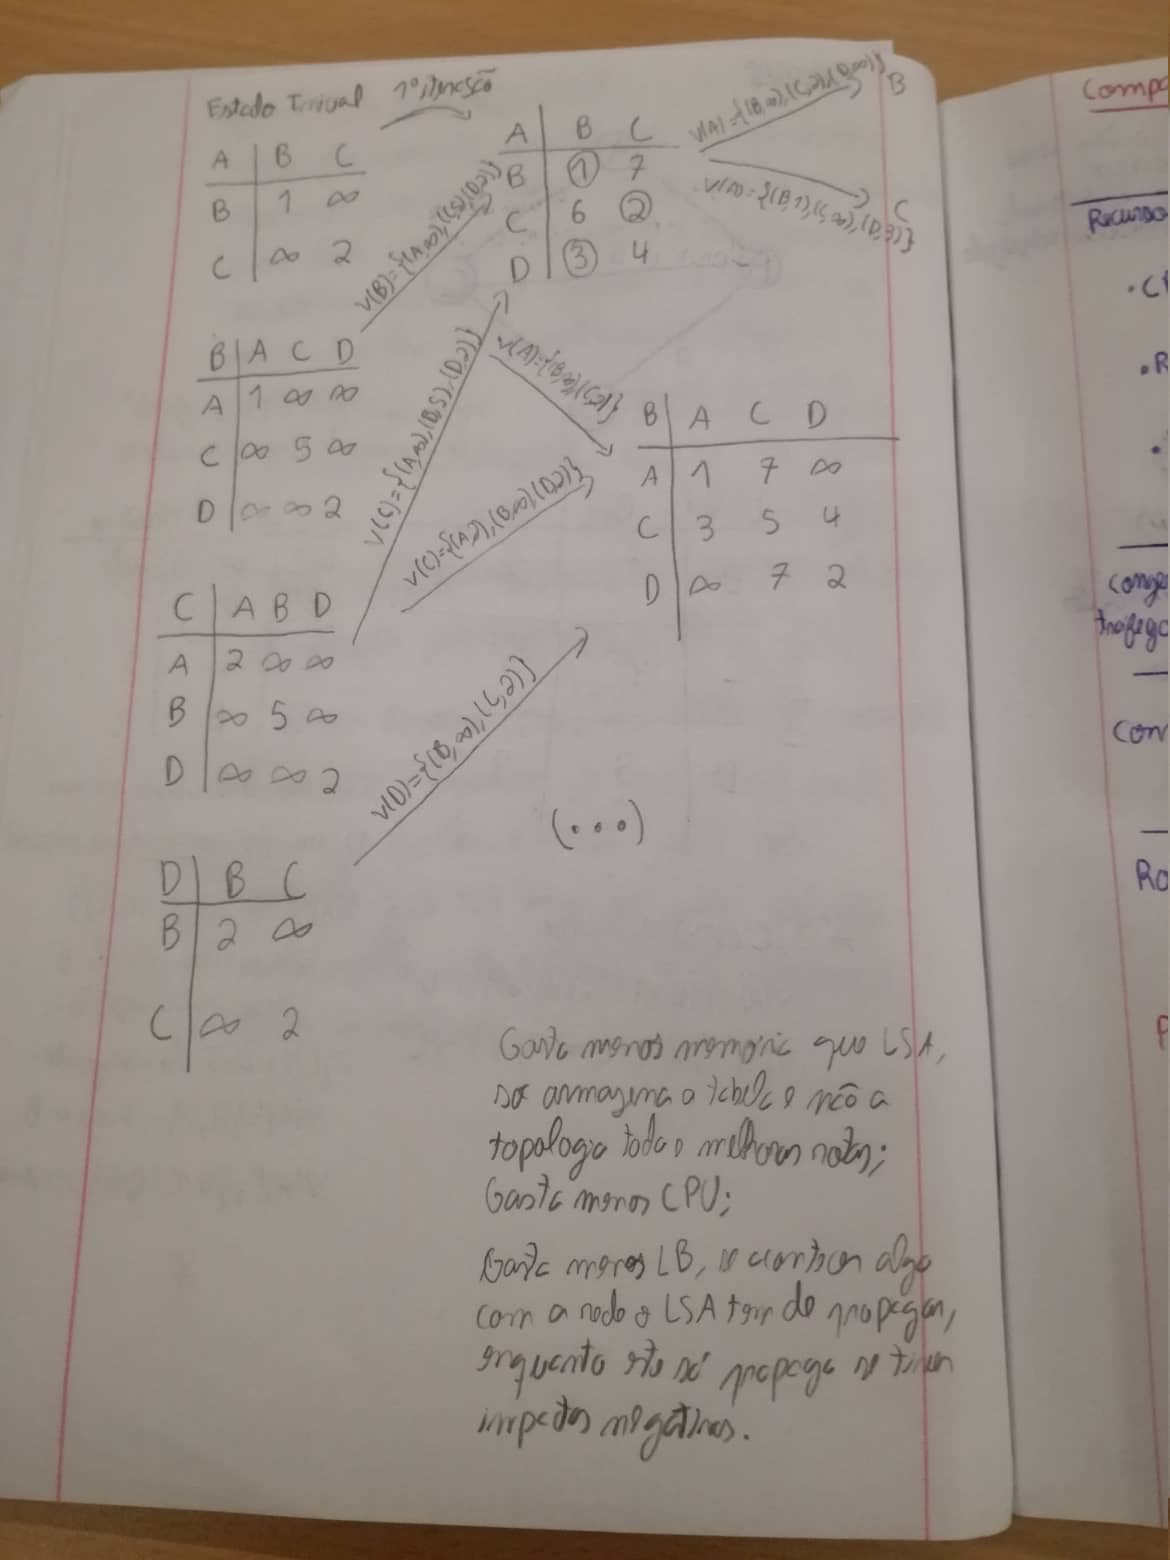 Estado Inicial 1ª iteração
A | B C
B | 1 ∞
C | ∞ 2
B | A C D
A | 1 ∞ ∞
C | ∞ 5 ∞
D | ∞ ∞ 2
C | A B D
A | 2 ∞ ∞
B | ∞ 5 ∞
D | ∞ ∞ 2
D | B C
B | 2 ∞
C | ∞ 2
V(B)={(A,∞),(C,5),(D,2)}
V(C)={(A,∞),(B,5),(D,2)}
V(A)={(B,∞),(C,2)}
V(C)={(A,2),(B,∞),(D,2)}
V(D)={(B,∞),(C,2)}
A | B C
B | 1 7
C | 6 2
D | 3 4
V(A)={(B,∞),(C,2),(D,∞)} B
V(A)={(B,1),(C,∞),(D,3)} C
B | A C D
A | 1 7 ∞
C | 3 5 4
D | ∞ 7 2
(...)
Gasta menos memória que LSA,
só armazena a tabela e não a
topologia toda e melhores rotas;
Gasta menos CPU;
Gasta menos LB, se acontecer algo
com a rede o LSA tem de propagar,
enquanto este só propaga se tiver
impactos negativos.
Comp
Recurso
• C
• R
•
conge
tráfego
Con
Ro